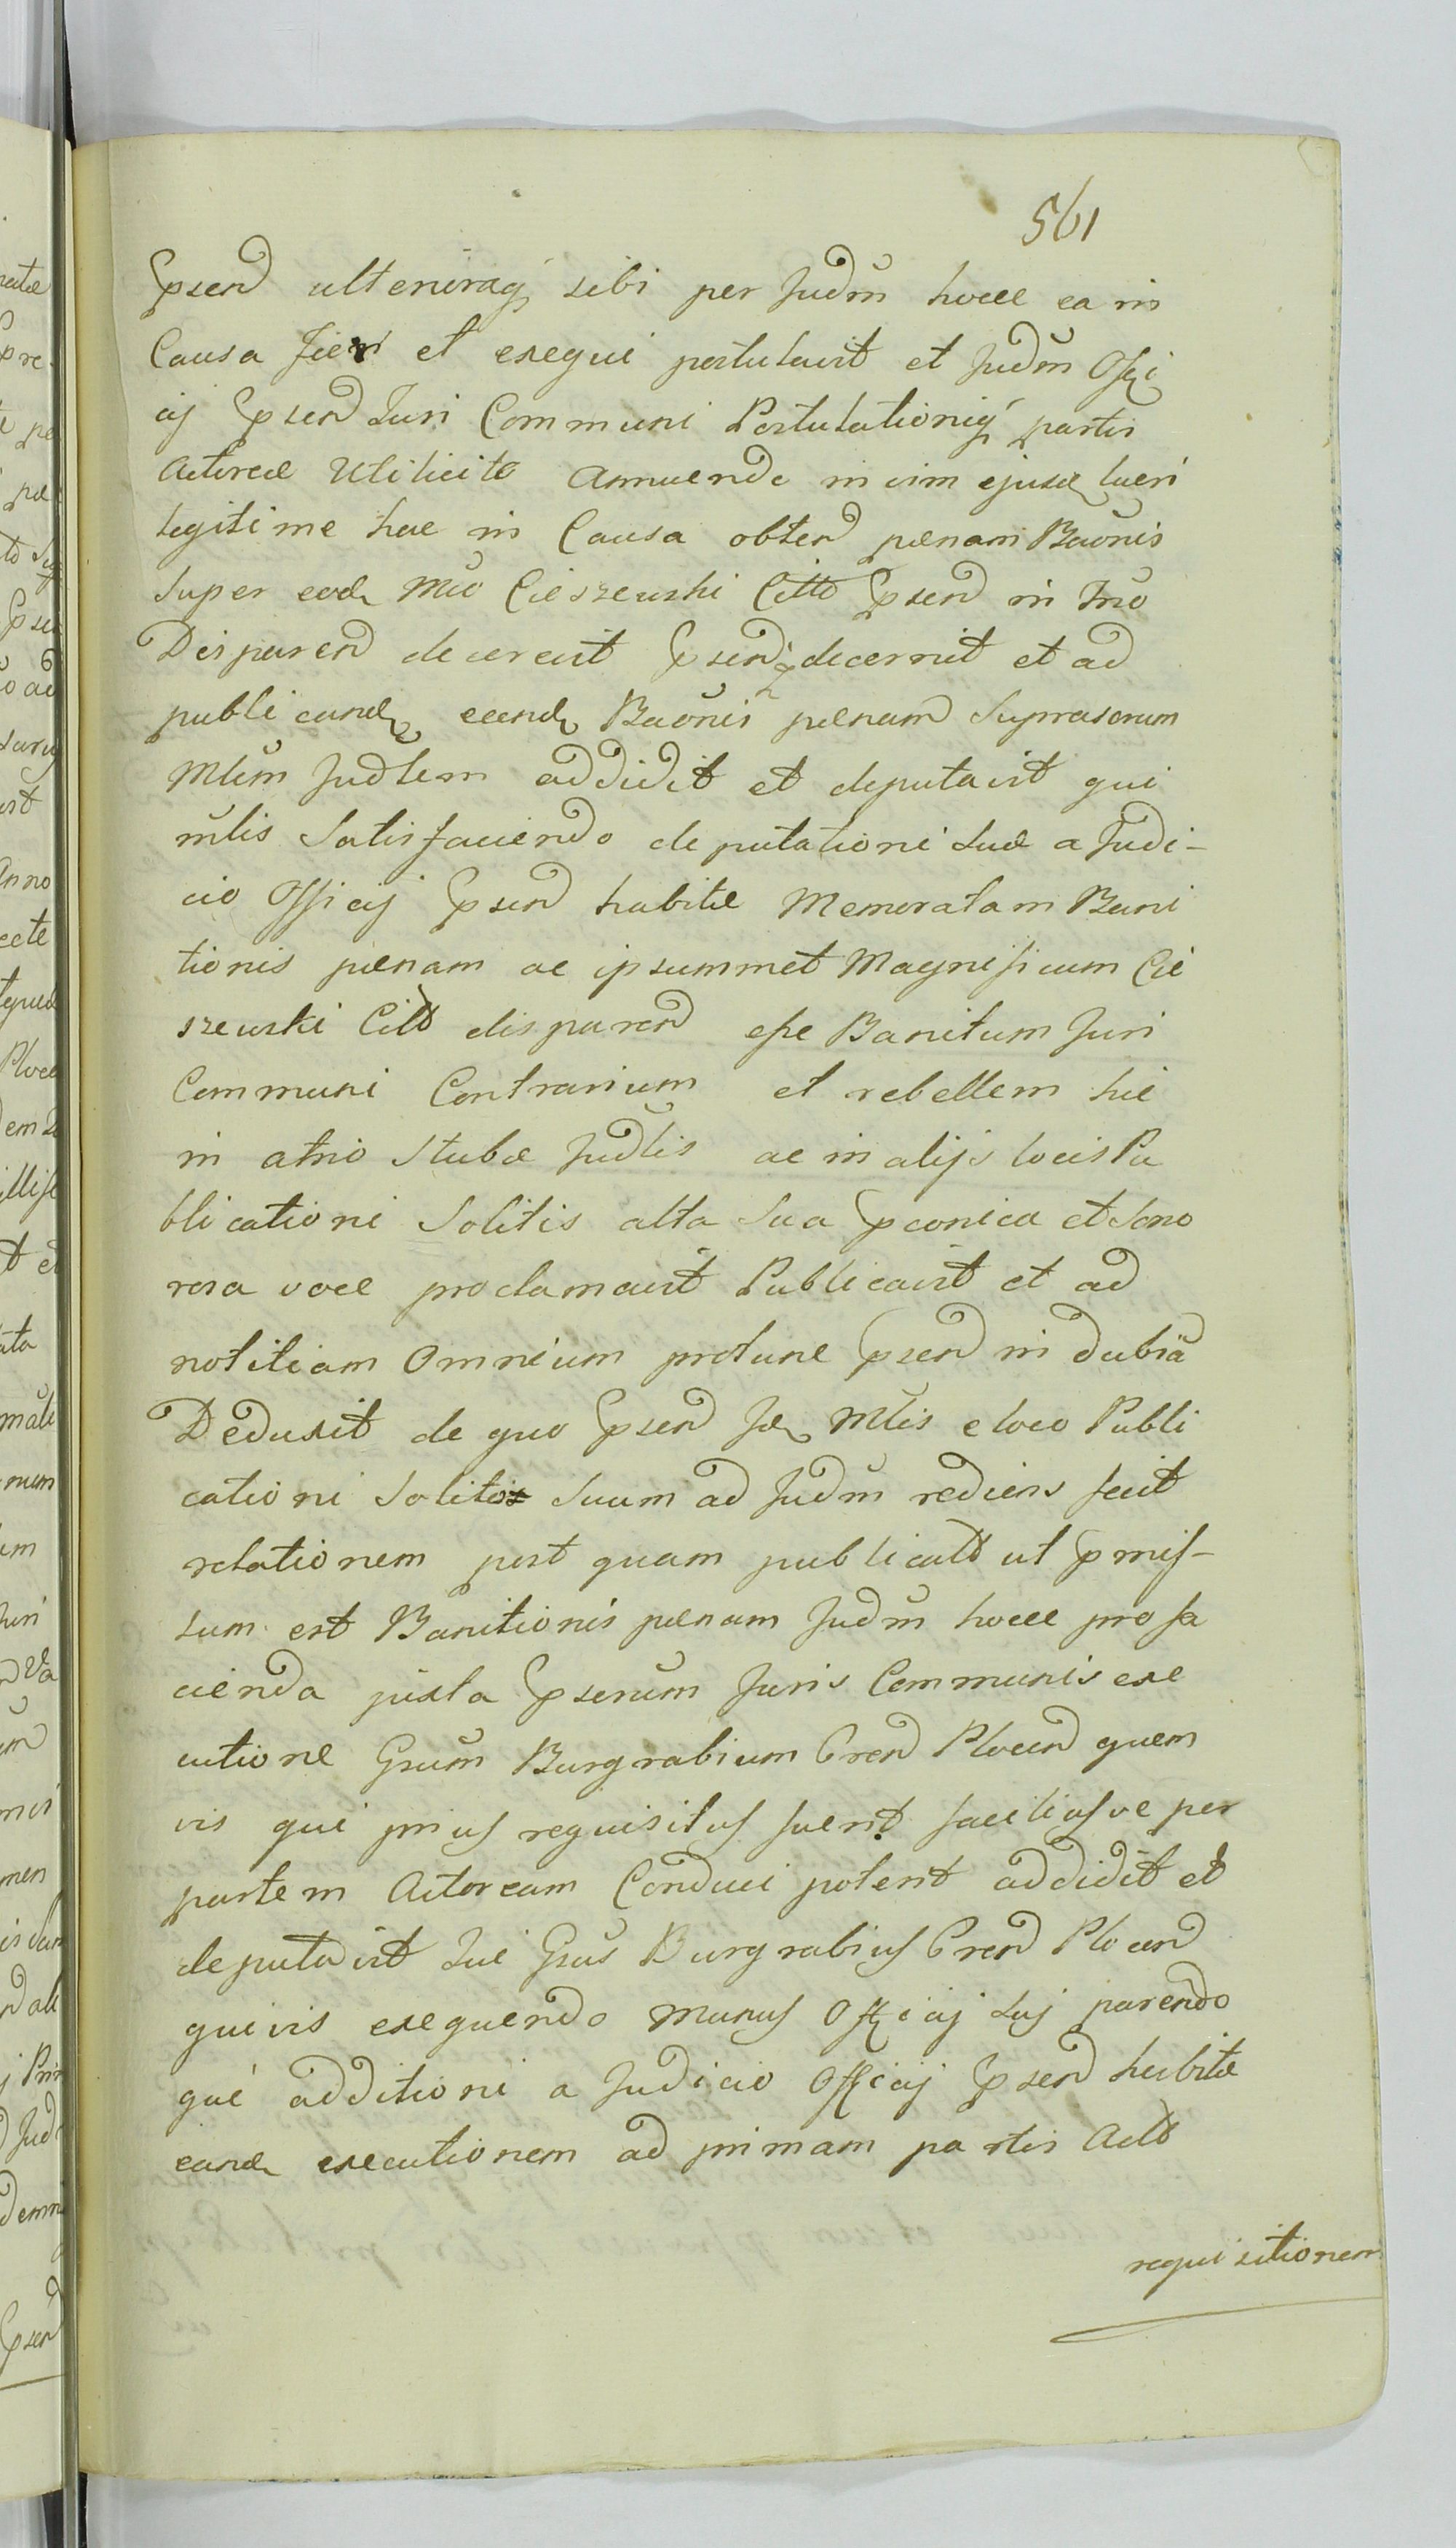 561
Psend ulterioraq; sibi per Judm hocce ea in
Causa fieri et exequi postulavit et Judm Offi
cij Psend Juri Communi Postulationiq; partis
Actoreæ Uti licito Annuendo in vim ejusd lucri
legitime hac in Causa obten pænam Baonis
Super eod Mco Cieszewski Citto Psend in Tno
Disparen decrevit Psendq; decernit et ad
publicand eand Baonis pænam Suprascrum
Mlem Judlem addidit et deputavit qui
mlis Satisfaciendo deputationi suæ a Judi-
cio Officij Psend habitæ Memoratam Bani
tionis pænam ac ipsummet Magnificum Cie
szewski Citt disparen esse Banitum Juri
Communi Contrarium et rebellem hic
in atrio Stubæ Judlis ac in alijs locis Pu
blicationi Solitis alta Sua Pconica et Sono
rosa voce proclamavit Publicavit et ad
notitiam Omnium protunc Psend in dubia
Deduxit de quo Psend Id Mlis e loco Publi
cationi Solito Suum ad Judm rediens fecit
relationem post quam publicatt ut Pmis-
sum est Banitionis pænam Judm hocce pro fa
cienda juxta Pserum Juris Communis exe
cutione Gsum Burgrabium Cren Plocen quem
vis qui prius requisitus fuerit faciliusve per
partem Actoream Conduci poterit addidit et
deputavit qui Gsus Burgrabius Cren Plocen
quivis exequendo munus Officij sui parendo
que additioni a Judicio Officij Psend habitæ
eand executionem ad primam partis Actt
requisitionem